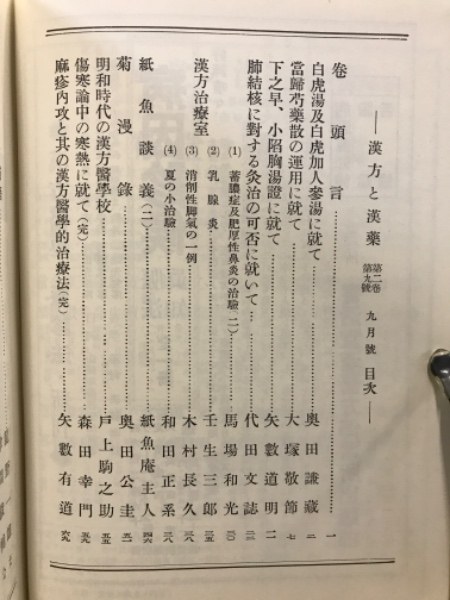 ―漢方と漢藥 第二卷 第九號 九月號 目次―
卷頭言………一
白虎湯及白虎加人參湯に就て………奧田謙藏…二
當歸芍藥散の運用に就て………大塚敬節…七
下之早、小陷胸湯證に就て………矢數道明…一一
肺結核に對する灸治の可否に就いて…代田文誌…二三
漢方治療室
(1) 蓄膿症及肥厚性鼻炎の治驗(二)…馬場和光…三〇
(2) 乳腺炎………壬生三郎…三五
(3) 消削性脚氣の一例………木村長久…三八
(4) 夏の小治驗………和田正系…三八
紙魚談義(二)………紙魚庵主人…四六
菊漫錄………奧田公圭…五一
明和時代の漢方醫學校………戸上駒之助…五五
傷寒論中の寒熱に就て(完)………森田幸門…五九
麻疹內攻と其の漢方醫學的治療法(完)…矢數有道…六九